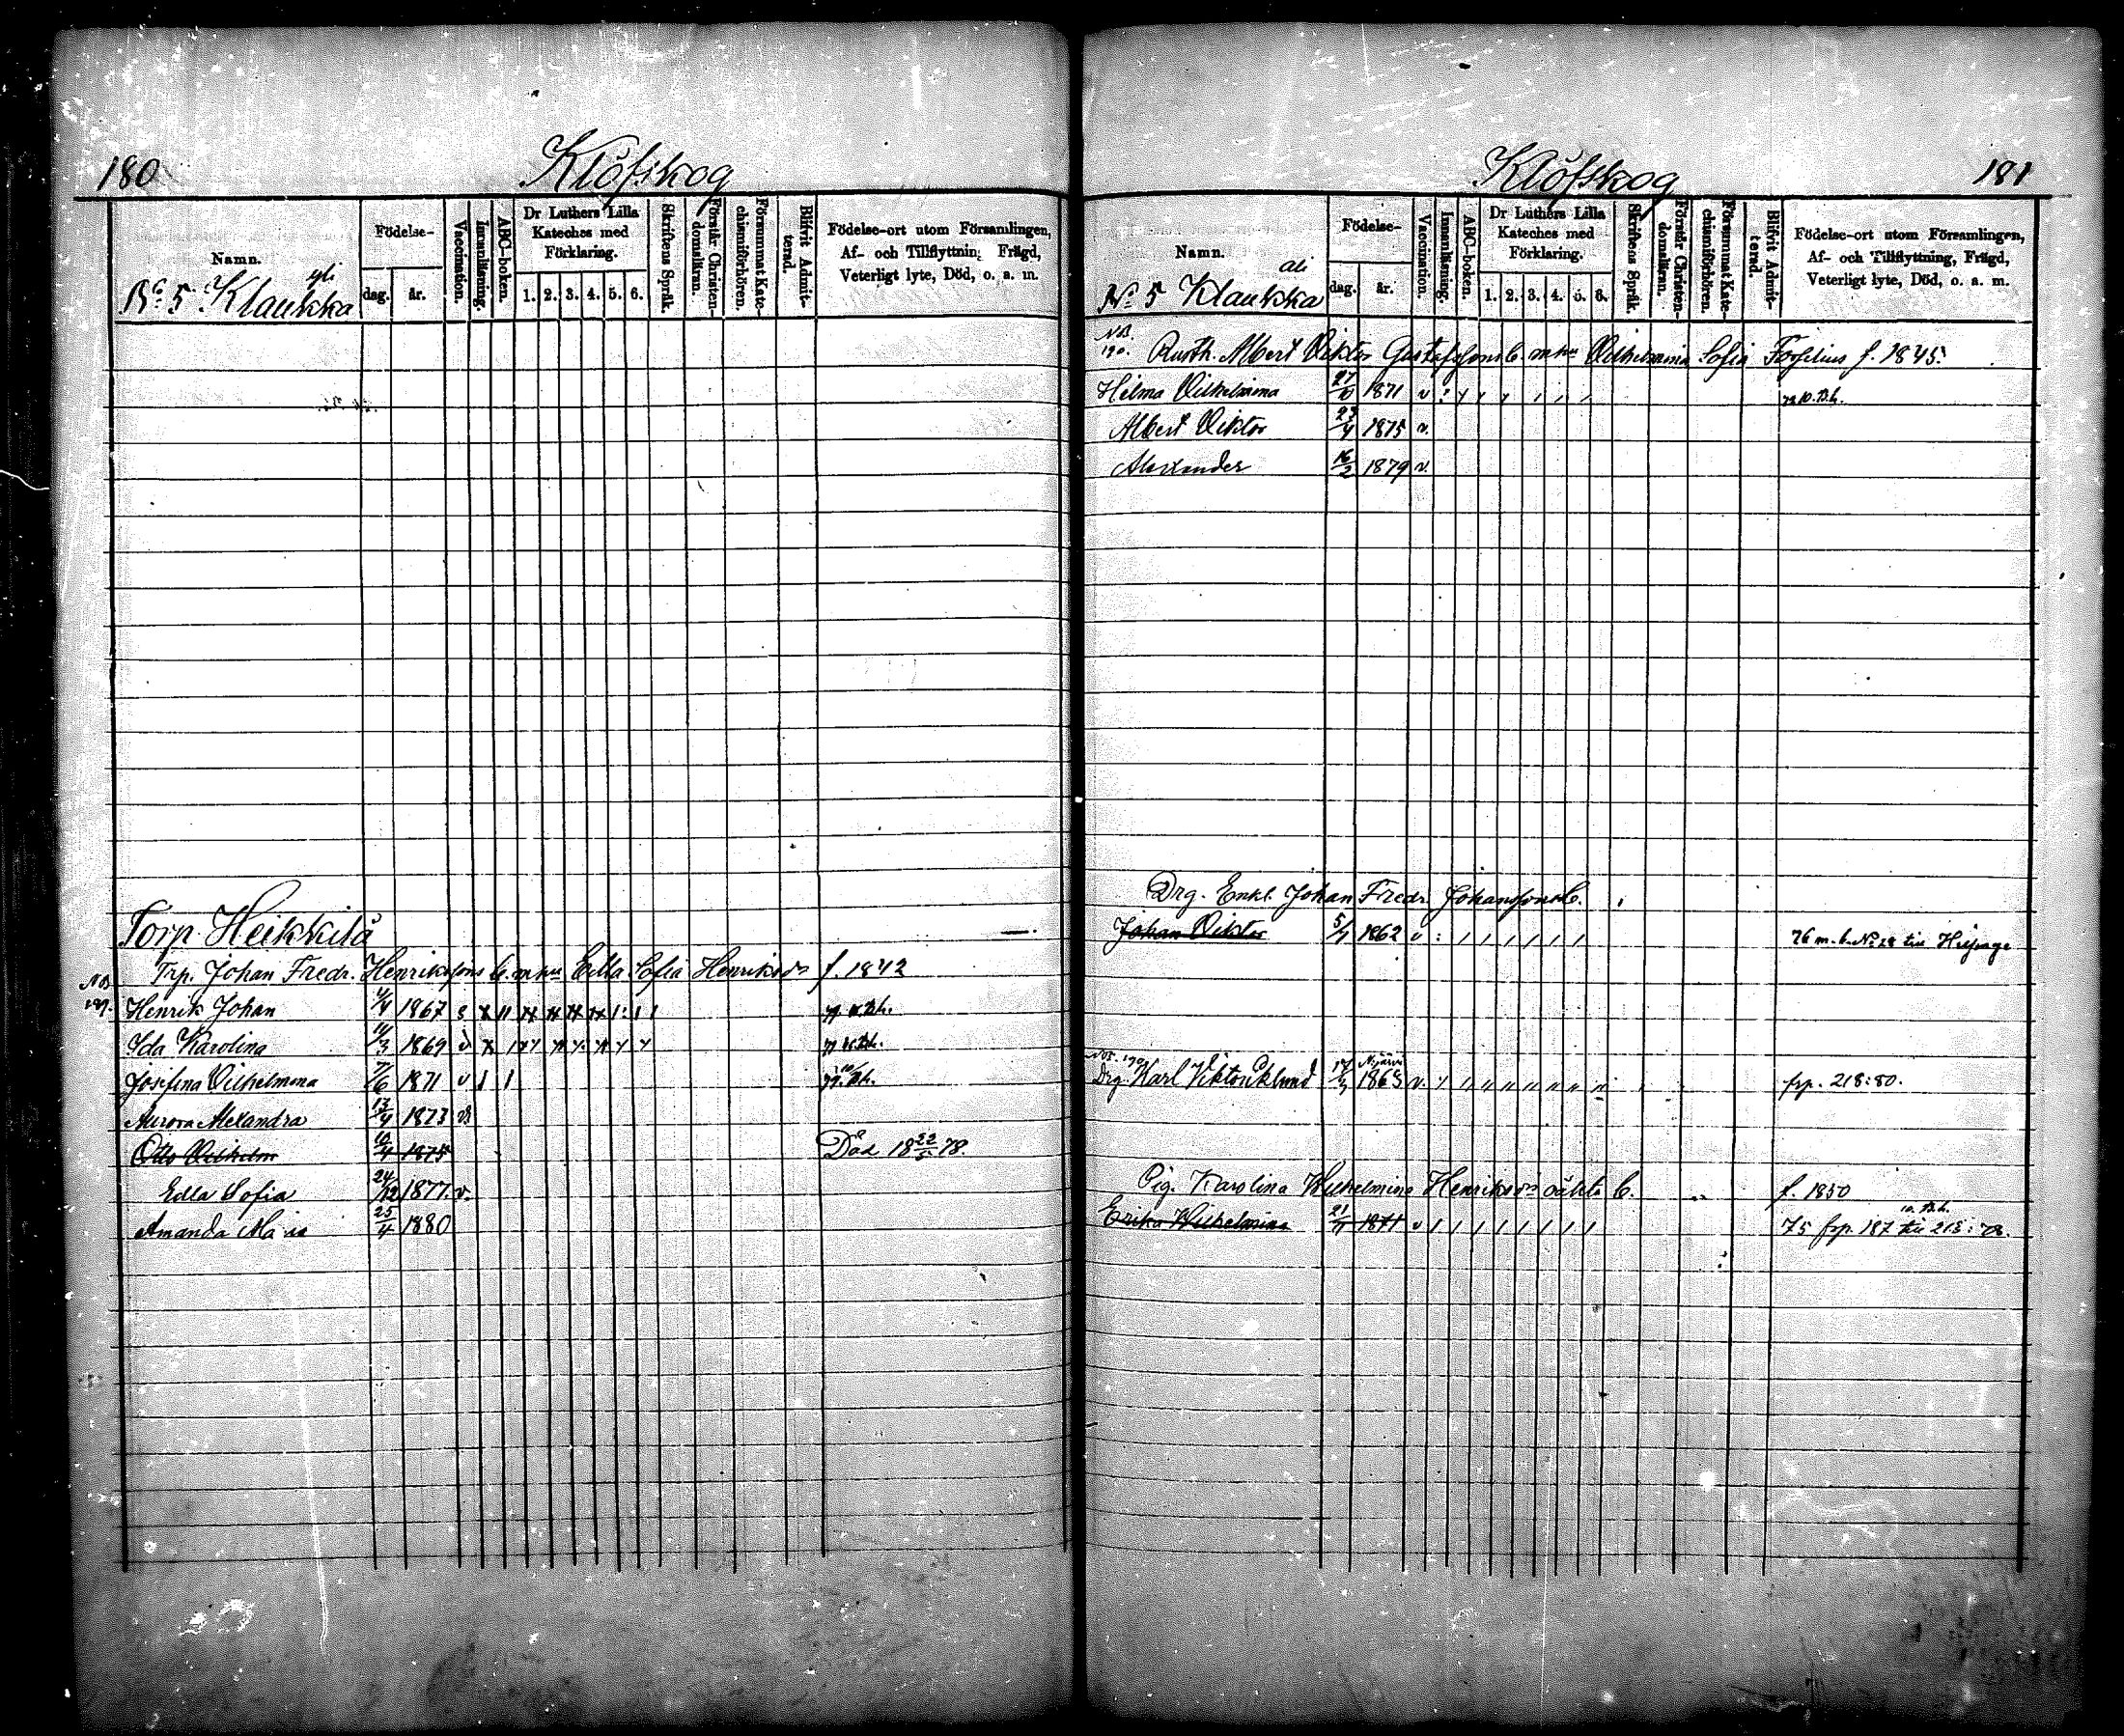 180
Klöfskog
Namn.
Födelse-
dag.
år.
Vaccination.
Innanläsning.
ABC-boken.
Dr Luthers Lilla
Kateches med
Förklaring.
1. 2. 3. 4. 5. 6.
Skriftens Språk.
Förstår Christen-
domsläran.
Försummat Kate-
chismiförhören.
Blifvit Admit-
terad.
Födelse-ort utom Församlingen,
Af- och Tillflyttning, Frägd,
Veterligt lyte, Död, o. a. m.
yli
No 5 Klaukka
Torp Heikkilä
Trp. Johan Fredr. Henrikssons b. m hu Edla Sofia Henriksdr f. 1842
NB
Henrik Johan 1867
Ida Karolina 11/3 1869 v
Josefina Vilhelmina 7/6 1871 v
Aurora Alexandra 13/4 1873 v
Otto Vilhelm 10/4 1875 Död 18 22/5 78.
Edla Sofia 24/12 1877. v.
Amanda Maria 25/4 1880
Klöfskog
181
Namn.
Födelse-
dag.
år.
Vaccination.
Innanläsning.
ABC-boken.
Dr Luthers Lilla
Kateches med
Förklaring.
1. 2. 3. 4. 5. 6.
Skriftens Språk.
Förstår Christen-
domsläran.
Försummat Kate-
chismiförhören.
Blifvit Admit-
terad.
Födelse-ort utom Församlingen,
Af- och Tillflyttning, Frägd,
Veterligt lyte, Död, o. a. m.
ali
No 5 Klaukka
NB.
190. Rusth. Albert Viktor Gustafssons b. m hu Vilhelmina Sofia Forselius f. 1845.
Hilma Vilhelmina 27/10 1871 v
Albert Viktor 23/4 1875 v.
Alexander 16/2 1879 v.
Drg. Enkl. Johan Fredr. Johanssons b.
Johan Viktor 5/7 1862 v 76 m. b. No 28 till
Drg. Karl Viktor Eklund 1865 v. frp. 218:80.
Pig. Karolina Wilhelmina Henriksdrs oäkta b. f. 1850
10. Bh.
Erika Wilhelmina 21/11 1871 v 75 frp. 187 till 213:78.